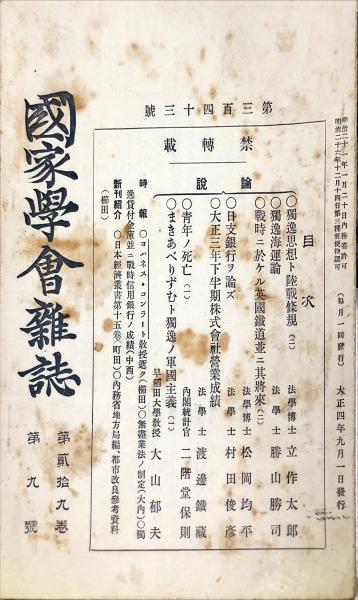 明治二十一年一月二十日內務省許可
明治二十六年十二月十四日第三種郵便物認可
(每月一回發行)
大正四年九月一日發行
第三百四十三號
禁轉載
目次
論說
〇獨逸思想ト陸戰條規(三) 法學博士 立作太郎
〇獨逸海運論 法學士 勝山勝司
〇戰時ニ於ケル英國鐵道並ニ其將來(二) 法學博士 松岡均平
〇日支銀行ヲ論ズ 法學士 村田俊彥
〇大正三年下半期株式會社營業成績 法學士 渡邊鐵藏
〇靑年ノ死亡(一) 內閣統計官 二階堂保則
〇まきあべりずむト獨逸ノ軍國主義(一) 早稻田大學敎授 大山郁夫
時報 〇ヨハネス・コンラート敎授逝ク(櫛田)〇無盡業法ノ制定(大內)〇獨
逸貸付金庫並ニ戰時信用銀行ノ成績(中西)
新刊紹介 〇日本經濟叢書第十五卷(町田)〇內務省地方局編、都市改良參考資料
(櫛田)
國家學會雜誌
第貳拾九卷
第九號